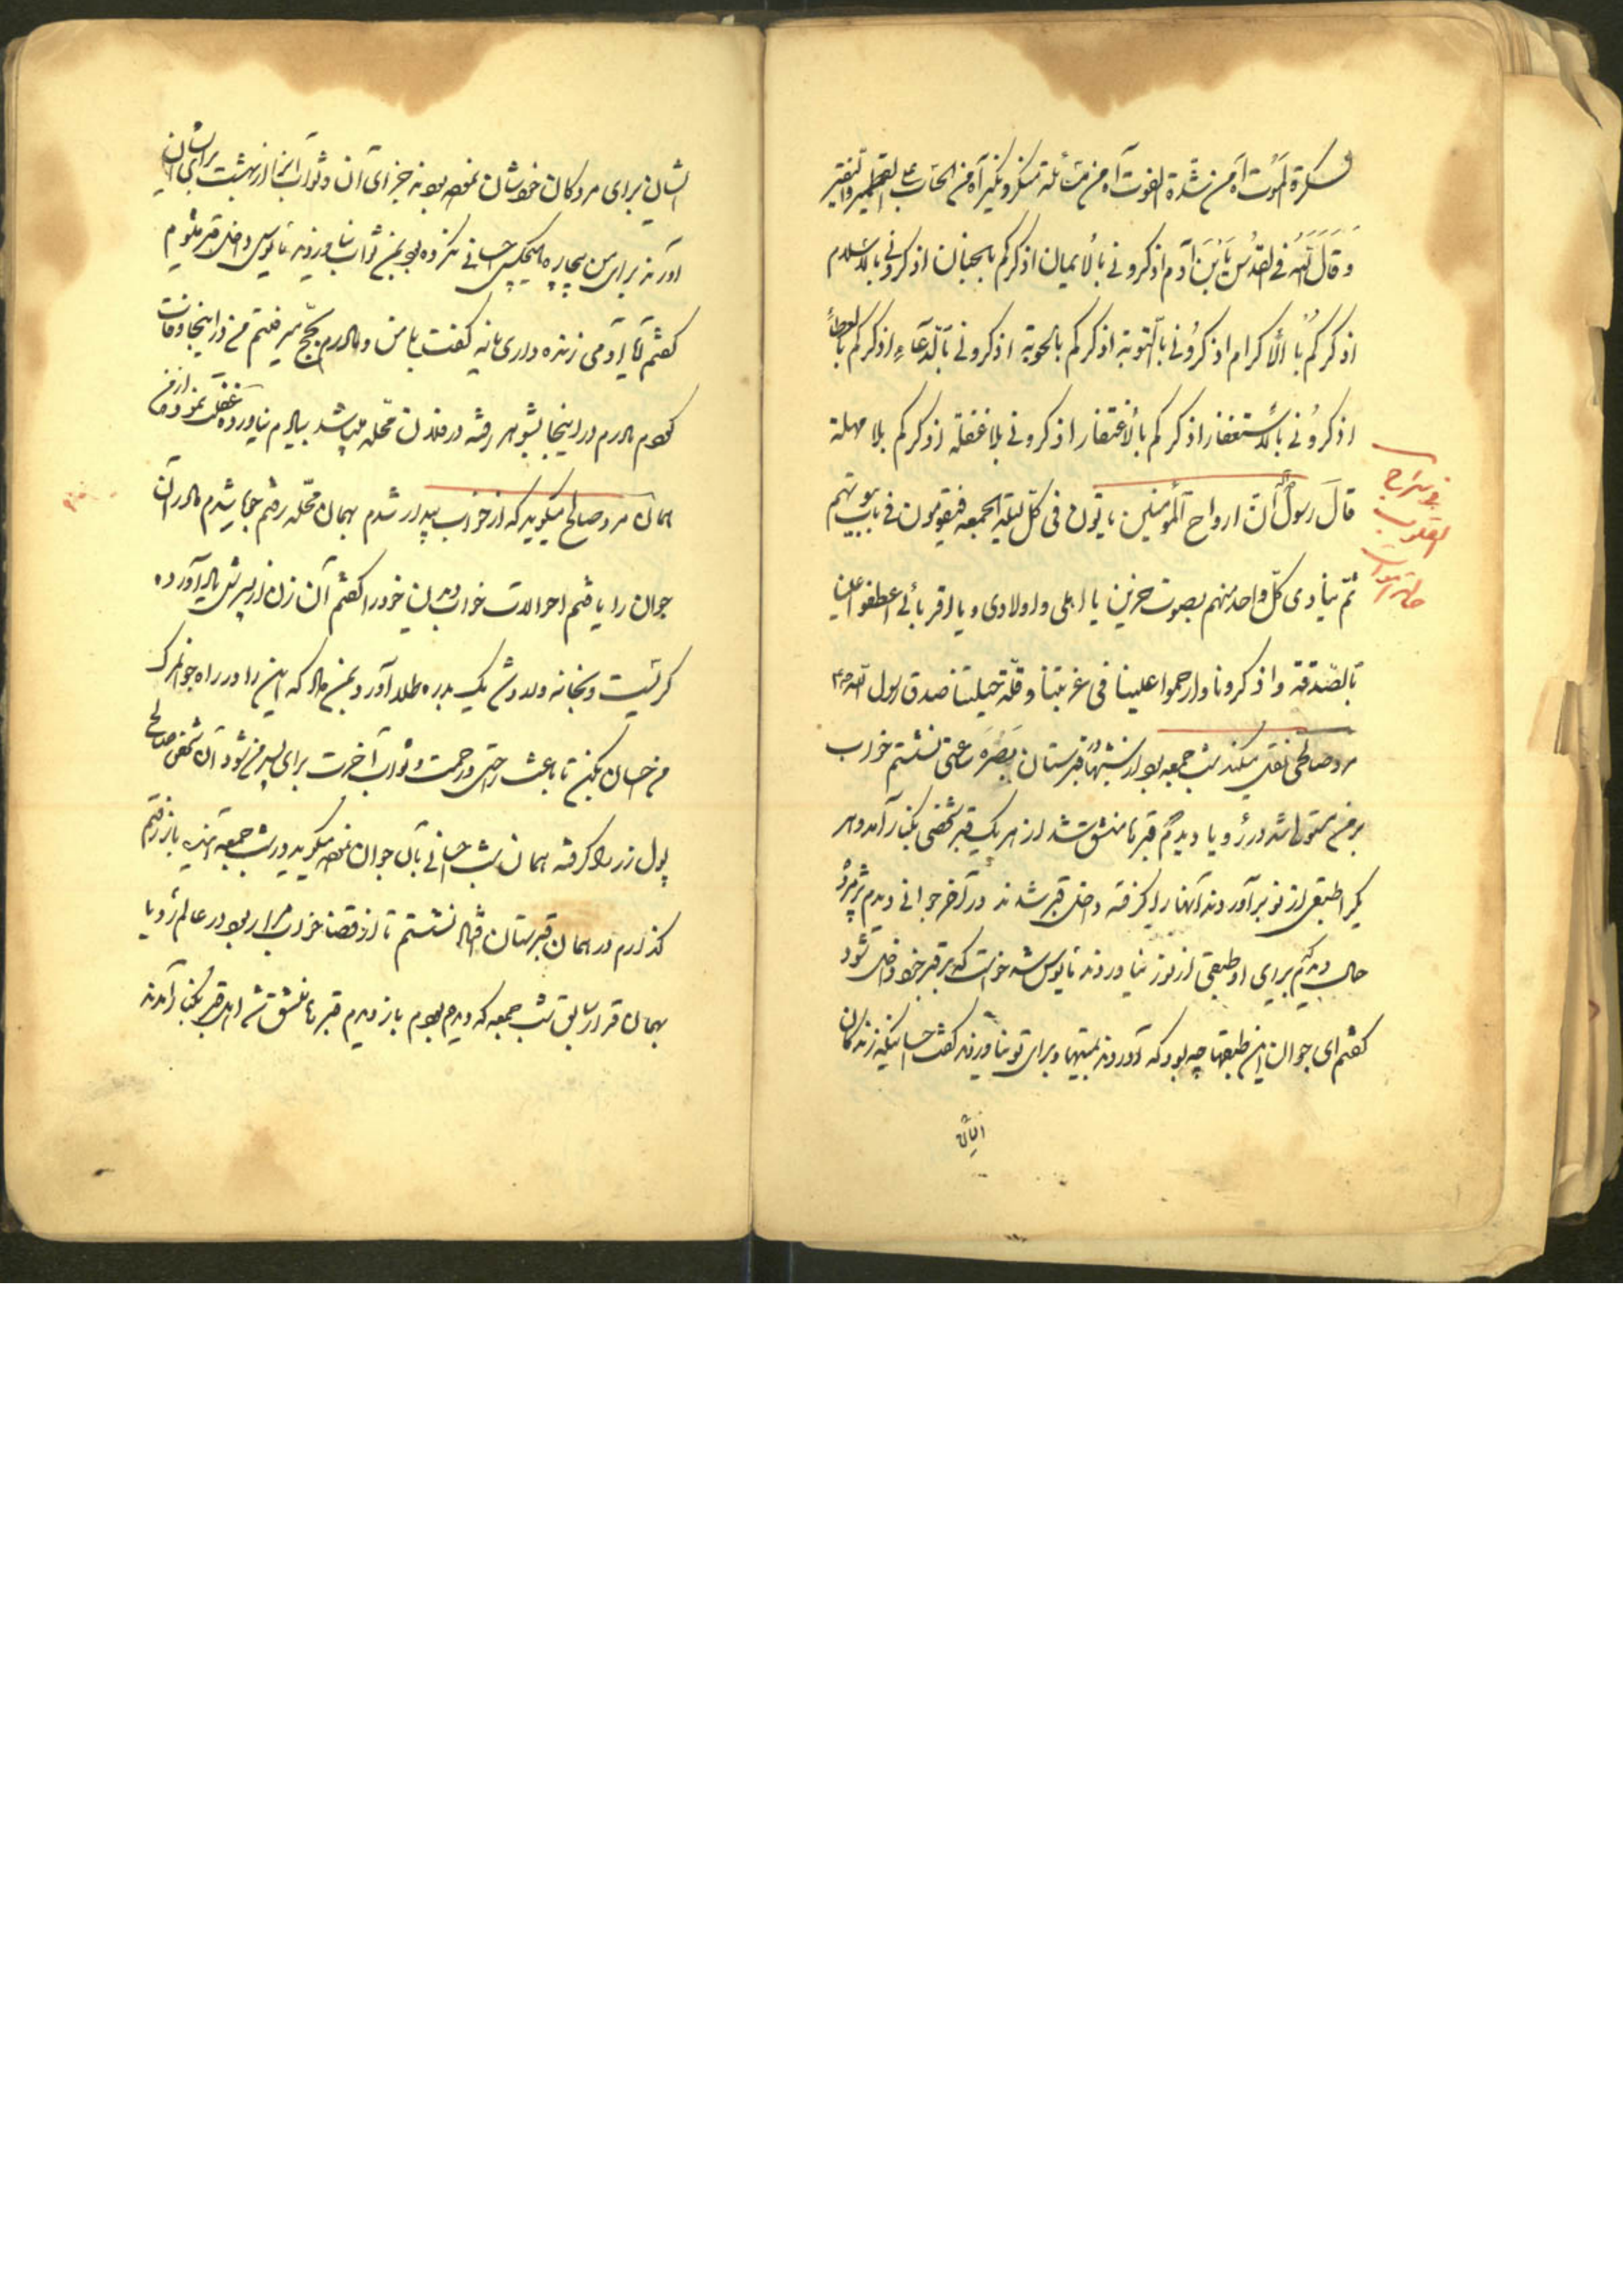 سكرة الموت آه من شدة الفوت آه من مسئلة منكر و نكير آه من الحساب القطمير والنقير
و قال الله فى القدس يا بن آدم اذكرونى بالايمان اذكركم بالجنان اذكرونى بالاسلام
اذكركم بالاكرام اذكرونى بالتوبة اذكركم بالحوبة اذكرونى بالدعاء اذكركم بالعطاء
اذكرونى بالاستغفار اذكركم بالاغتفار اذكرونى بلا غفلة اذكركم بلا مهلة
قال رسول ان ارواح المؤمنين ياتون فى كل ليلة الجمعه فيقومون فى باب بيوتهم
ثم ينادى كل واحد منهم بصوت حزين يا اهلى و اولادى و يا اقربائى اعطفوا علينا
بالصدقة و اذكرونا و ارحموا علينا فى غربتنا و قلة حيلتنا صدق رسول الله
فى سراج
القلوب
مرد صالحى نقل ميكند شب جمعه بود از شبها قبرستان بصره ساعتى نشستم خواب
بر من مستولى شد در رؤيا ديدم قبرها منشق شد از هر يك قبر شخصى بكنار آمد و هر
يكى را طبقى از نور آوردند آنها را گرفته داخل قبر شدند در آخر جوانى ديدم پژمرده
حال ديدم براى او طبقى از نور نياوردند مايوس شد خواست كه بر قبر خود داخل شود
گفتم اى جوان اين طبقها چه بود كه آوردند بميتها و براى تو نياوردند گفت احسانيكه زندگان
ايشان
ايشان براى مردگان خودشان نموده بودند جزاى آن و ثواب آنرا از بهشت براى ايشان
آوردند براى من بيچاره هيچكس احسانى نكرده بود بمن ثواب نياوردند مايوس داخل قبر ميشوم
گفتم آيا آدمى زنده دارى يا نه گفت با من و مادرم بحج ميرفتيم من در اينجا وفات
كردم مادرم در اينجا بشوهر رفته در فلان محله ميباشد بيادم نياورده غفلت نموده از من
همان مرد صالح ميگويد كه از خواب بيدار شدم بهمان محله رفتم جويا شدم مادر آن
جوان را يافتم احوالات خواب ديدن خود را گفتم آن زن از پسرش ياد آورده
گريست و بخانه رفت يك بدره طلا آورد بمن داد كه اين را در راه جوانمرگ
من احسان بكن تا باعث راحتى و رحمت و ثواب آخرت براى پسر من شود آن شخص صالح
پول زر را گرفته همان شب احسانى بآن جوان نموده ميگويد در شب جمعه آينده باز رفتم
گذارم در همان قبرستان افتاد نشستم تا از قضا خواب مرا ربود در عالم رؤيا
بهمان قرار سابق شب جمعه كه ديده بودم باز ديدم قبرها منشق شد اهل قبر بكنار آمدند